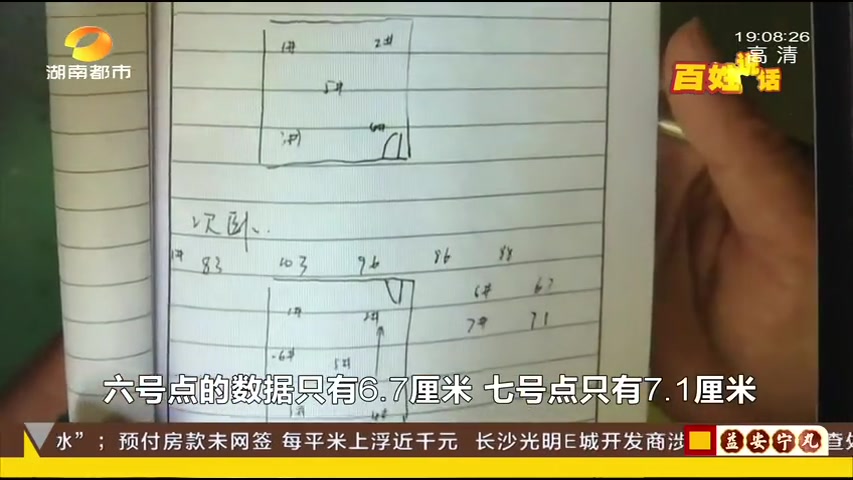 19:08:26
高清
湖南都市
百姓说话
1# 2#
5#
6#
次卧
1# 83 103 96 86 88
6# 67
7# 71
1# 2#
6# 5#
六号点的数据只有6.7厘米 七号点只有7.1厘米
水”；预付房款未网签 每平米上浮近千元 长沙光明E城开发商涉
益安宁丸
查处